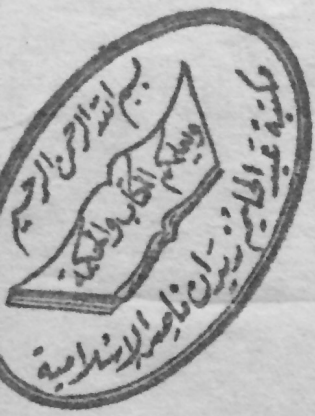 بسم الله الرحمن الرحيم
ويعلمهم الكتاب والحكمة
مكتبة عبد الحليم زيدان ناصر الإسلامية